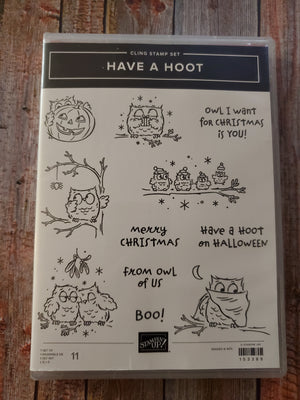 CLING STAMP SET
HAVE A HOOT
OWL I WANT
FOR CHRISTMAS
is YOU!
merry
CHRISTMAS
Have a HOOT
on HALLOWEEN
FROM OWL
OF US
BOO!
STAMPIN' UP!
11